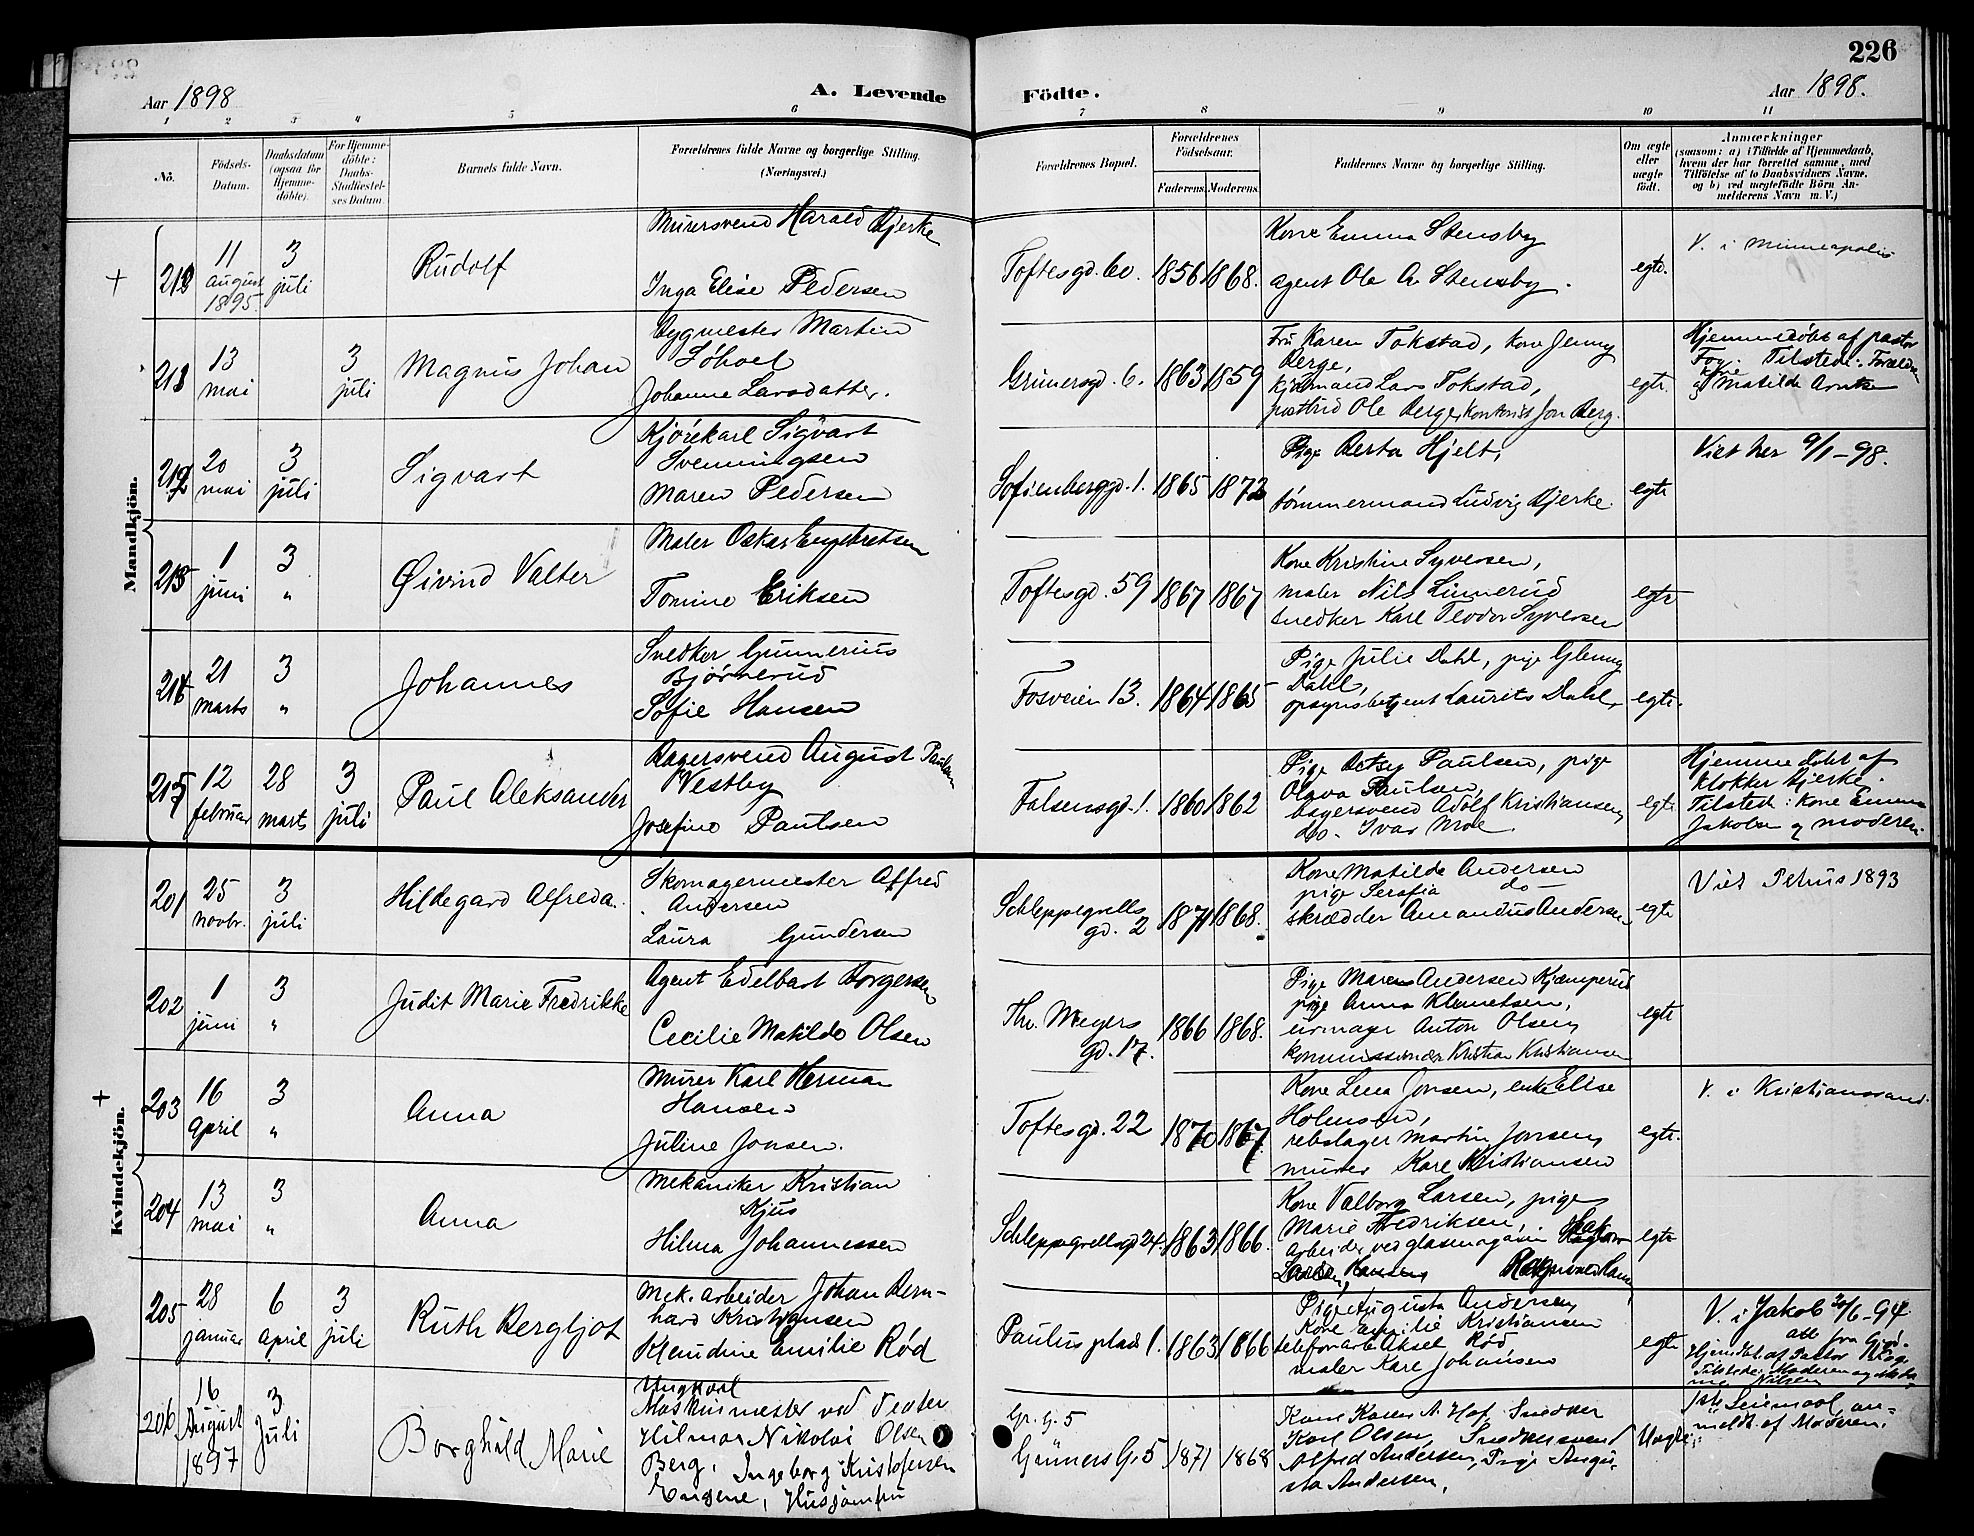 226
Aar 1898
A. Levende
Födte.
Aar 1898.
1 2 3 4 5 6 7 8 9 10 11
No.
Födsels-
Datum.
Daabsdatum
(ogsaa for
Hjemme-
döbte).
For Hjemme-
döbte:
Daabs-
Stadfæstel-
ses Datum.
Barnets fulde Navn.
Forældrenes fulde Navne og borgerlige Stilling.
(Næringsvei.)
Forældrenes Bopæl.
Forældrenes
Födselsaar.
Faderens. Moderens.
Faddernes Navne og borgerlige Stilling.
Om ægte
eller
uægte
födt.
Anmærkninger
(saasom: a) i Tilfælde af Hjemmedaab,
hvem der har forrettet samme, med
Tilföielse af to Daabsvidners Navne,
og b) ved uægtefödte Börn An-
melderens Navn m. V.)
Mandkjön.
+
11
august
1895.
3
juli
Rudolf
Murersvend Harald Bjerke
Inga Elise Pedersen
Toftesgd. 60.
1856 1868.
Kone Emma Stensby
agent Ole A. Stensby.
egte.
V. i Minneapolis
13
mai
3
juli
Magnus Johan
Bygmester Martin
Johanne Larsdatter.
Grünersgd. 6.
1863 1859
Fru Karen Tokstad, kone Jenny
Berge,
Lars Tokstad,
Ole Berge, kontorist Jon Berg.
egte.
Hjemmedøbt af pastor
Tilstede: Forældre
Matilde
20
mai
3
juli
Sigvart
Kjørekarl Sigvart
Svenningsen
Maren Pedersen
Sofienberggd. 1.
1865 1872
Pige Berta Hjelt,
tømmermand Ludvig Bjerke
egte
Viet her 9/1-98.
1
juni
3
"
Øivind Valter
Maler Oskar Engebretsen
Tomine Eriksen
Toftesgd. 59
1867 1867
Kone Kristine Syversen,
maler Nils Linnerud
snedker Karl Teodor Syversen
egte
21
marts
3
"
Johannes
Snedker Gunnerius
Bjørnerud
Sofie Hansen
Fosveien 13.
1864 1865
Pige Julie Dahl, pige Glenny
Dahl,
opsynsbetjent Laurits Dahl,
egte.
12
februar
28
marts
3
juli
Paul Aleksander
Bagersvend August Paulsen
Vestby
Josefine Paulsen
Falsensgd. 1.
1860 1862
Pige Betsy Paulsen, pige
Olava Paulsen,
bagersvend Adolf Kristiansen,
do. Ivar Moe.
egte
Hjemmedøbt af
klokker Bjerke.
Tilsted: kone Emma
Jakobsen og moderen.
Kvindekjön.
201
25
novbr.
3
juli
Hildegard Alfreda.
Skomagermester Alfred
Andersen
Laura Gundersen
Schleppegrells
gd. 2
1871 1868.
Kone Matilde Andersen
pige Serafia do
skrædder Amandus Andersen
egte
Viet Petrus 1893
202
1
juni
3
"
Judit Marie Fredrikke
Agent Edelbart Borgersen
Cecilie Matilde Olsen
Th. Meyers
gd. 17.
1866 1868.
Pige Maren Andersen Kjæmperud
pige Anna Klemetsen,
urmager Anton Olsen,
kommissionær Kristian Kristiansen
egte
+
203
16
april
3
"
Anna
Murer Karl Herman
Hansen
Juline Jonsen.
Toftesgd. 22
1870 1867.
Kone Lena Jonsen, enke Elise
Holmsen,
rebslager Martin Jonsen,
murer Karl Kristiansen
egte.
V. i Kristianssand.
204
13
mai
3
"
Anna
Mekaniker Kristian
Kjus
Hilma Johannessen
Schleppegrellsgd 24.
1863 1866.
Kone Valborg Larsen, pige
Marie Fredriksen,
arbeider ved glasmagasin
egte
205
28
januar
6
april
3
juli
Ruth Bergljot
Mek. arbeider Johan Bern-
hard Kristiansen
Klaudine Emilie Rød
Paulus plads 1.
1863 1866
Pige Augusta Andersen,
Kone Emilie Kristiansen
telefonarb. Aksel Rød
maler Karl Johansen
egte
V. i Jakob 20/6-94
Hjemdøbt af Pastor
Tilstede: Moderen og
Nilsen
206
16
August
1897
3
Juli
Borghild Marie
Ungkarl
Maskinmester ved Teater
Hilmar Nikolai Olsen
Berg, Ingeborg Kristofersen
Eugene, Husjomfru
Gr. G. 5
Grüners G. 5
1871 1868
Kone Karen A. Hof, Snedker
Karl Olsen, Snedkersvend
Alfred Andersen, Pige Augu-
sta Andersen,
Uægte
1ste Leiermaal, an-
meldt af Moderen.